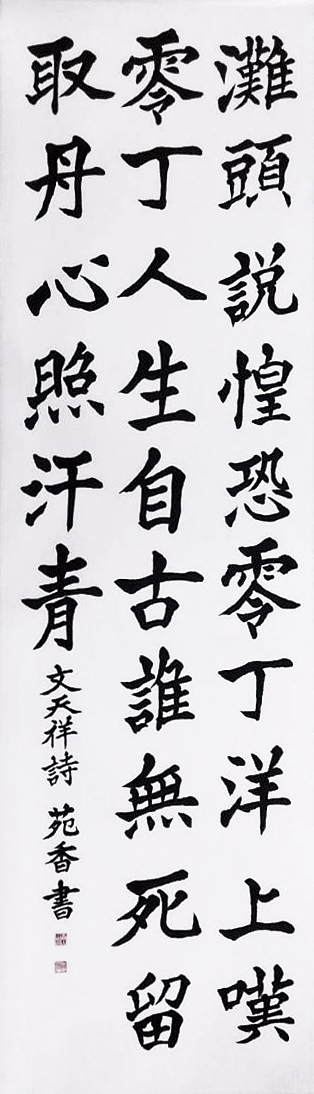 灘頭說惶恐零丁洋上嘆
零丁人生自古誰無死留
取丹心照汗青
文天祥詩 苑香書